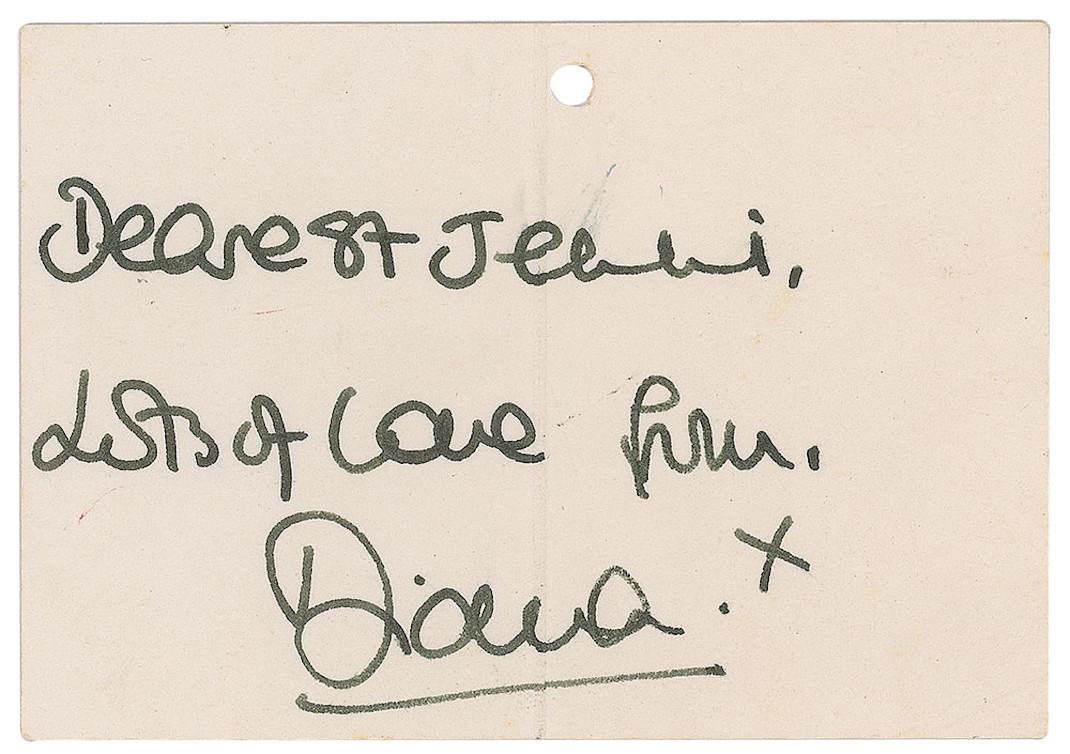 Dearest Jenni,
Lots of Love from.
Diana. x